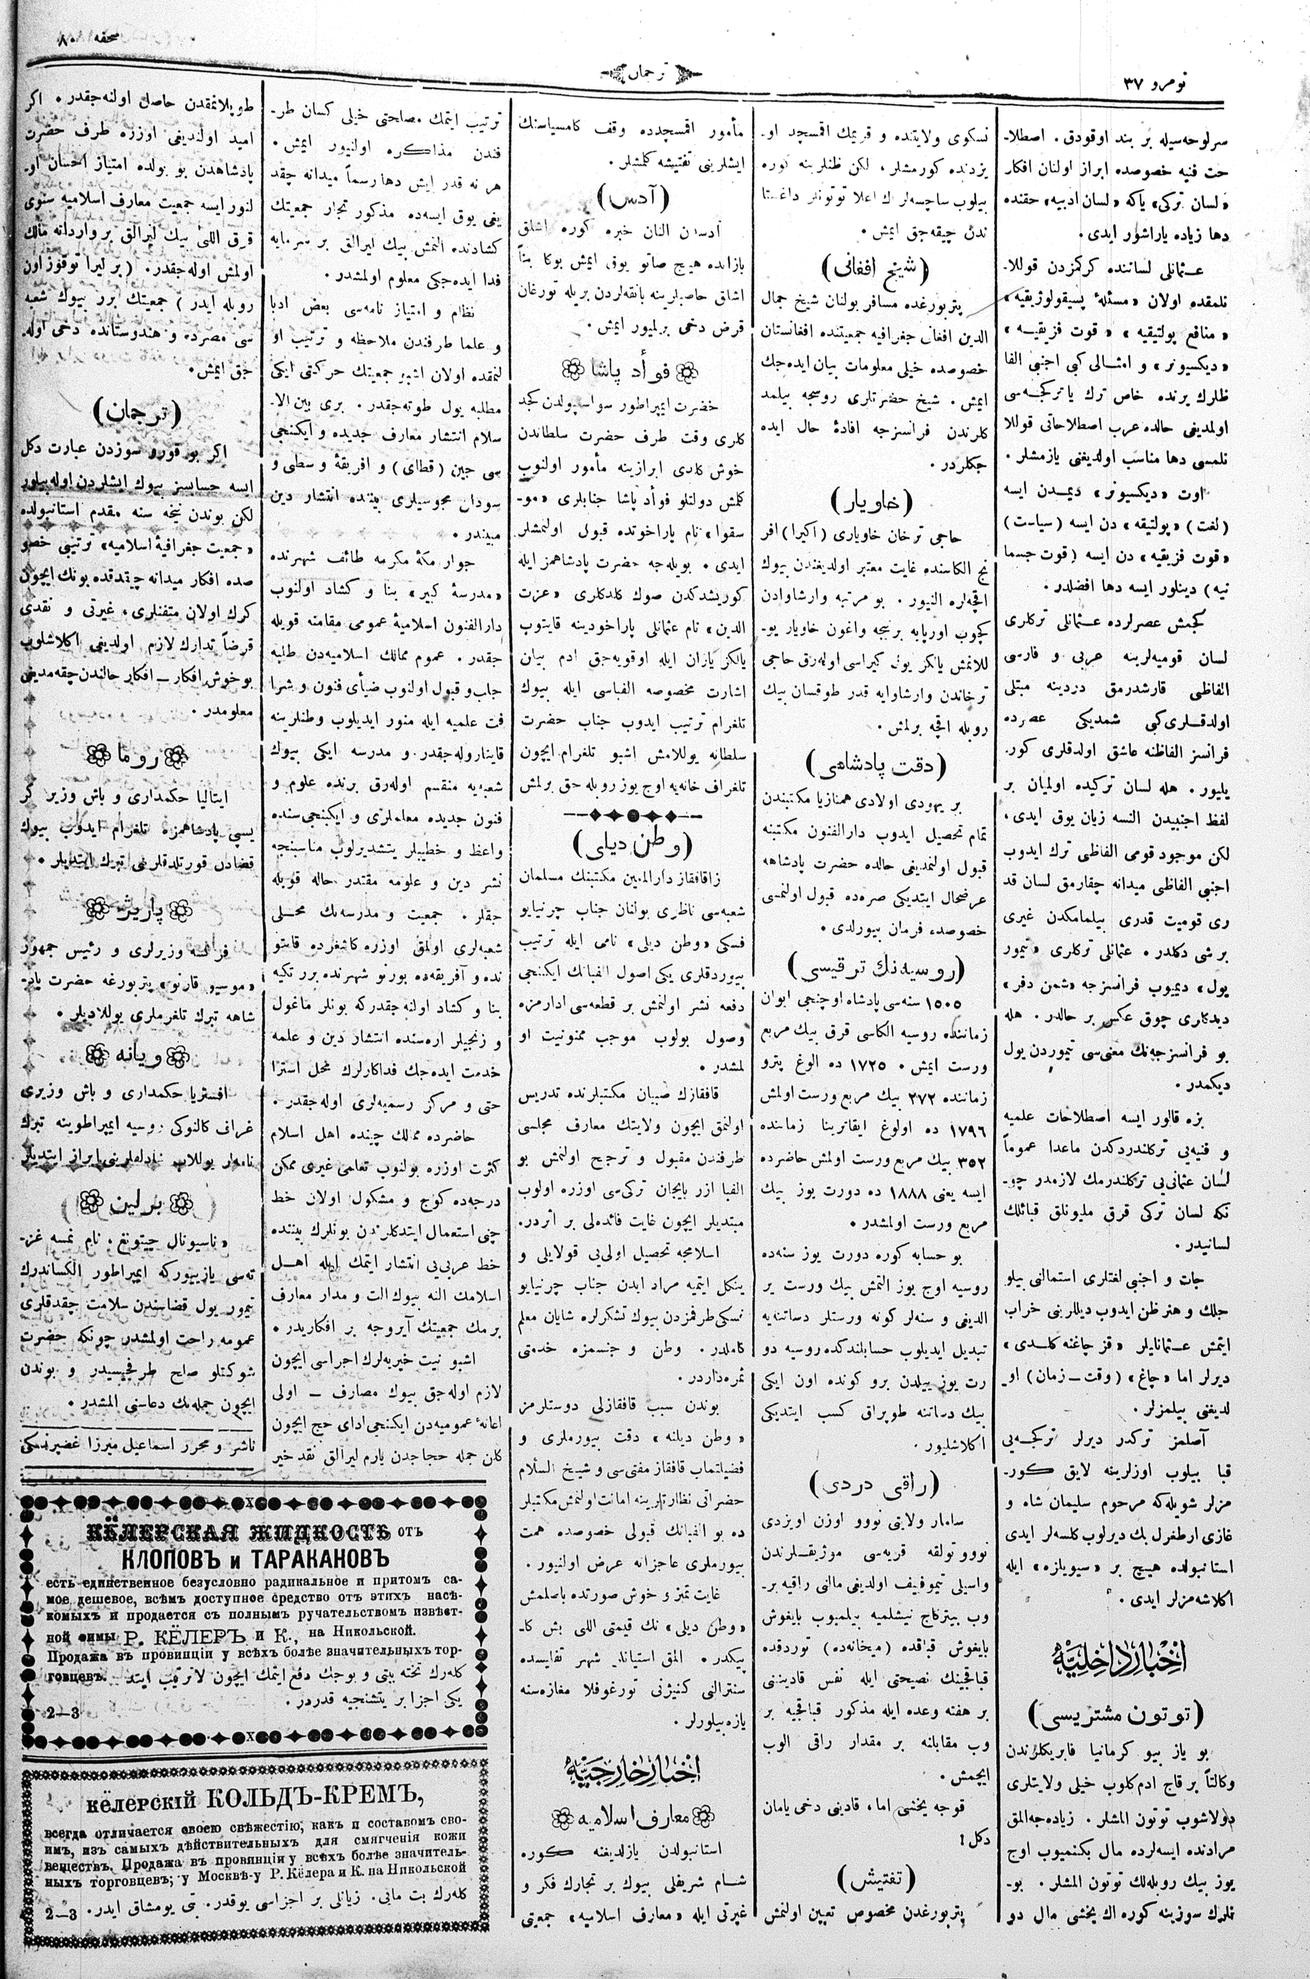 نومرو ٣٧
ترجمان
صحفه ٨٠
سرلوحه‌سیله بر بند اوقودق. اصطلا-
حت فنیه خصوصده ابراز اولنان افکار
«لسان ترکی» یاکه «لسان ادبیه» حقنده
دها زیاده یاراشور ایدی.
عـثمانلی لساننده کرکمزدن قوللا-
نلمقده اولان «مسئلهٔ پسیقولوژیقیه»
«منافع پولتیقیه» «قوت فزیقیـه»
«دیکسیونر» و امثـالی کبی اجنبی الفا
ظلرك برنده خاص ترك یا ترکجه‌سی
اولمدیغی حالده عرب اصطلاحاتی قوللا
نلمسی دها مناسب اولدیغی یازمشلر.
اوت «دیکسیونر» دیمـدن ایسه
(لغت) «پولتیقه» دن ایسه (سیاست)
«قوت فزیقیه» دن ایسه (قوت جسما
نیه) دینلور ایسه دها افضلدر.
کجمش عصرلرده عـثمانلی ترکلری
لسان قومیه‌لرینه عربی و فارسی
الفاظی قارشدرمق دردینه مبتلی
اولدقـلری‌کبی شمدیکی عصرده
فرانسز الفاظنه عاشق اولدقلری کور-
یلیور. هله لسان ترکیده اولمیان بر
لفظ اجنبیدن النسه زیان یوق ایدی،
لکن موجود قومی الفاظی ترك ایدوب
اجنبی الفاظی میدانه چقارمق لسان قد
ری قومیت قدری بیلمامکدن غیری
بر شی دکلدر. عثمانلی ترکلری «تیمور
یول» دیمیوب فرانسزجه «شمن دفر»
دیدکلری چوق عکس بر حالدر. هله
بو فرانسزجه‌نك معنی‌سی تیموردن یول
دیکمدر.
بزه قالور ایسه اصطلاحات علمیه
و فنیه‌یی ترکلندردکدن ماعدا عموماً
لسان عثمانی‌یی ترکلندرمك لازمدر چو-
نکه لسان ترکی قرق ملیونلق قبائلك
لسانیدر.
جات و اجنبی لغتلری استعمالنی بیلو
جلك و هنر ظن ایدوب دیللرینی خراب
ایتمش عـثمانلیلر «قز چاغنه کلـدی»
دیرلر اما «چاغ» (وقت ــ زمان) او-
لدیغنی بیلمزلر.
آصلمز ترکدر دیرلر ترکجه‌یی
قبا بیلوب اوزلرینه لایق کور-
مزلر شویله‌که مرحوم سلیمان شاه و
غازی ارطغرل بك دیرلوب کلسه‌لر ایدی
استانبولده هیچ بر «سویازه» ایله
اکلاشه‌مزلر ایدی.
اخبار داخلیه
(توتون مشتریسی)
بو یاز بیو کرمانیا فابریکلرندن
وکالتاً بر قاج ادم کلوب خیلی ولایتلری
دولاشوب توتون المشلر. زیاده‌جه المق
مرادنده ایسه‌لرده مال بکنمیوب اوج
یوز بیك روبله‌لك توتون المشلر. بو-
نلرك سوزینه کوره اك یخشی مال دو
نسکوی ولایتنده و قریمك اقمسجد او-
یزدنده کورمشلر، لکن ظنلرینه کوره
بیلوب ساچسه‌لر اك اعلا توتونلر داغستا
ندن چیقه‌جق ایمش.
(شیخ افغانی)
پتربورغده مسافر بولنان شیخ جمال
الدین افغان جغرافیه جمعیتنده افغانستان
خصوصده خیلی معلومات بیان ایده‌جك
ایمش. شیخ حضرتلری روسجه بیلمد
کلرندن فرانسزجه افادهٔ حال ایده
جکلردر.
(خاویار)
حاجی ترخان خاویاری (اکبرا) افر
نج الکاسنده غایت معتبر اولدیغندن بیوك
اقچه‌لره النیور. بو مرتبه وارشاوادن
کچوب اوربایه برنیجه واغون خاویار یو-
للانمش یالکز یولی کیراسی اوله‌رق حاجی
ترخاندن وارشاوایه قدر طوقسان بیك
روبله اقچه برلمش.
(دقت پادشاهی)
بر یهودی اولادی همنازیا مکتبندن
تمام تحصیل ایدوب دارالفنون مکتبنه
قبول اولنمدیغی حالده حضرت پادشاهه
عرضحال ایتدیکی صره‌ده قبول اولنمسی
خصوصده فرمان بیورلدی.
(روسیه‌نك ترقیسی)
١٥٠٥ سنه‌سی پادشاه اوچنجی ایوان
زماننده روسیه الکاسی قرق بیك مربع
ورست ایمش. ١٧٢٥ ده الوغ پترو
زماننده ٢٧٢ بیك مربع ورست اولمش
١٧٩٦ ده اولوغ ایقاترینا زماننده
٣٥٢ بیك مربع ورست اولمش حاضرده
ایسه یعنی ١٨٨٨ ده دورت یوز بیك
مربع ورست اولمشدر.
بو حسابه کوره دورت یوز سنه‌ده
روسیه اوج یوز التمش بیك ورست یر
الدیغی و سنه‌لر کونه ورستلر دساتنه‌یه
تبدیل ایدیلوب حسابلندکده روسیه دو
رت یوز ییلدن برو کونده اون ایکی
بیك دساتنه طوپراق کسب ایتدیکی
اکلاشلیور.
(راقی دردی)
سامار ولایتی نووو اوزن اویزدی
نووو تولقه قریه‌سی موژیقـلرندن
واسیلی تیموفیف اولدیغی مالنی راقیه بر-
وب بیترنکاج نیشلمیه بیلمیوب بایغوش
بایغوش قباقده (میخانه‌ده) توردقده
قباقچینك نصیحتی ایله نفس قادیننی
بر هفته وعده ایله مذکور قباقچیه بر
وب مقابلنه بر مقدار راقی الوب
ایچمش.
قوجه یخشی اما، قادینی دخی یامان
دکل!
(تفتیش)
پتربورغدن مخصوص تعیین اولنمش
مأمور اقمسجدده وقف کامسیاسنك
ایشلرینی تفتیشه کلمشلر.
(آدس)
ادسدن النان خبره کوره اشلق
بازارنده هیچ صاتو یوق ایمش بوکا بناً
اشلق حاصللرینه بانقه‌لردن بریله تورغان
قرض دخی برلمیور ایمش.
فوأد پاشا
حضرت ایمپراطور سواستپولدن کجد
کلری وقت طرف حضرت سلطاندن
خوش کلدی ابرازینه مأمور اولنوب
کلمش دولتلو فوأد پاشا جنابلری «مو-
سقوا» نام پاراخوتده قبول اولنمشلر
ایدی. بویله‌جه حضرت پادشاهمز ایله
کورشدکدن صوك کلدکلری «عزت
الدین» نام عثمانلی پاراخودینه قایتوب
یالکز یازان ایله اوقویه‌جق ادم بیان
اشارت مخصوصه الفباسی ایله بیوك
تلغرام ترتیب ایدوب جناب حضرت
سلطانه یوللامش اشبو تلغرام ایچون
تلغراف خانه‌یه اوج یوز روبله حق برلمش
(وطن دیلی)
زاقافقاز دارالمعلمین مکتبنك مسلمان
شعبه‌سی ناظری بولنان جناب چرنیایو
فسکی «وطن دیلی» نامی ایله ترتیب
بیوردقلری یکی اصول الفبانك ایکنجی
دفعه نشر اولنمش بر قطعه‌سی ادارمزه
وصول بولوب موجب ممنونیت او
لمشدر.
قافقازك صبیان مکتبلرنده تدریس
اولنمق ایچون ولایتك معارف مجلسی
طرفندن مقبول و ترجیح اولنمش بو
الفبا ازر بایجان ترکی‌سی اوزره اولوب
مبتدیلر ایچون غایت فائده‌لی بر اثردر.
اسلامجه تحصیل اولی‌یی قولایلی و
ینکل ایتمیه مراد ایدن جناب چرنیایو
فسکی طرفمزدن بیوك تشکرلره شایان معلم
کاملدر. وطن و جنسمزه خدمتی
ثمره‌داردر.
بوندن سبب قافقازلی دوستلرمز
«وطن دیلنه» دقت بیورملری و
فضیلتماب قافقاز مفتی‌سی و شیخ السلام
حضراتی نظارتلرینه امانت اولنمش مکتبلر
ده بو الفبانك قبولی خصوصده همت
بیورملری عاجزانه عرض اولنیور.
غایت تمز و خوش صورتده باصلمش
«وطن دیلی» نك قیمتی اللی بش کا-
پیکدر. المق استیانلر شهر تفلیسده
سنترالنی کنیژنی تورغوفلا مغازه‌سنه
یازه‌بیلورلر.
اخبار خارجیه
معارف اسلامیه
استانبولدن یازلدیغنه کوره
شام شریفلی بیوك بر تجارك فکر و
غیرتی ایله «معارف اسلامیه» جمعیتی
ترتیب ایتمك مصلحتی خیلی کسان طر-
فندن مذاکره اولنیور ایمش.
هر نه قدر ایش دها رسماً میدانه چقد
یغی یوق ایسه‌ده مذکور تجار جمعیتك
کشادنده التمش بیك لیرالق بر سرمایه
فدا ایده‌جکی معلوم اولمشدر.
نظام و امتیاز نامه‌سی بعض ادبا
و علما طرفندن ملاحظه و ترتیب او
لنمقده اولان اشبو جمعیتك حرکتی ایکی
مطلبه یول طوته‌جقدر. بری بین الا-
سلام انتشار معارف جدیده و ایکنجی
سی چین (قطای) و افریقهٔ وسطی و
سودان مجوسیلری بیننده انتشار دین
مبیندر.
جوار مکهٔ مکرمه طائف شهرنده
«مدرسهٔ کبیر» بنا و کشاد اولنوب
دارالفنون اسلامیهٔ عمومی مقامنه قویله
جقدر. عموم ممالك اسلامیه‌دن طلبه
جلب و قبول اولنوب ضیأی فنون و شرا
فت علمیه ایله منور ایدیلوب وطنلرینه
قایتاروله‌جقدر. و مدرسه ایکی بیوك
شعبه‌یه منقسم اوله‌رق برنده علوم و
فنون جدیده معلملری و ایکینجی‌سنده
واعظ و خطیبلر یتشدیرلوب مناسبنجه
نشر دین و علومه مقتدر حاله قویله
جقلر. جمعیت و مدرسه‌نك محـلی
شعبه‌لری اولمق اوزره کاشغرده قانتو
نده و آفریقه‌ده بورنو شهرنده برر تکیه
بنا و کشاد اولنه جقدرکه بونلر ماغول
و زنجیلر اره‌سنده انتشار دین و علمه
خدمت ایده‌جك فداکارلرك محل استرا
حتی و مرکز رسمیه‌لری اوله‌جقدر.
حاضرده ممالك چینده اهل اسلام
کثرت اوزره بولنوب تعلمی غیری ممکن
درجه‌ده کوج و مشکول اولان خط
چنی استعمال ایتدکلرندن بونلرك بیننده
خط عربی‌یی انتشار ایتمك ایله اهـل
اسلامك النه بیوك الت و مدار معارف
برمك جمعیتك آیروجه بر افکاریدر.
اشبو نیت خیریه‌لرك اجراسی ایچون
لازم اوله‌جق بیوك مصارف ــ اولی
اعانهٔ عمومیه‌دن ایکنجی ادای حج ایچون
کلن جمله حجاجدن یارم لیرالق نقد خیر
طوپلانمقدن حاصل اولنه‌جقدر. اکر
امید اولندیغی اوزره طرف حضرت
پادشاهدن بو بولده امتیاز احسان او-
لنور ایسه جمعیت معارف اسلامیه سنوی
قرق اللی بیك لیرالق بر وارداته مالك
اولمش اوله‌جقدر. (بر لیرا توقوز اون
روبله ایدر) جمعیتك برر بیوك شعبه
سی مصرده و هندوستانده دخی اوله-
جق ایمش.
(ترجمان)
اکر بو قورو سوزدن عبارت دکل
ایسه حسابسز بیوك ایشلردن اوله‌بیلور
لکن بوندن نیجه سنه مقدم استانبولده
«جمعیت جغرافیهٔ اسلامیه» ترتیبی خصو
صده افکار میدانه چقدقده بونك ایچون
کرك اولان متفنلری، غیرتی و نقدی
قرضاً تدارك لازم اولدیغی اکلاشلوب
بو خوش افکار ــ افکار حالندن چقه‌مدیغی
معلومدر.
روما
ایتالیا حکمداری و باش وزیر کر
یسپی پادشاهمزه تلغرام ایدوب بیوك
قضادن قورتلدقلرینی تبرك ایتدیلر.
پاریژ
فرانسه وزیرلری و رئیس جمهور
«موسیو قارنو» پتربورغه حضرت پاد-
شاهه تبرك تلغرملری یوللادیلر.
ویانه
افستریا حکمداری و باش وزیری
غراف کالنوکی روسیه ایمپراطورینه تبرك
نامه‌لر یوللاب شادلقلرینی ابراز ایتدیلر
برلین
«ناسیونال جیتونغ» نام نمسه غز-
ته‌سی یازییورکه ایمپراطور الکساندرك
تیمور یول قضاسندن سلامت چقدقلری
عمومه راحت اولمشدر چونکه حضرت
شوکتلو صلح طرفچیسیدر و بوندن
ایچون جمله‌نك دعاسنی المشدر.
ناشر و محرر اسماعیل میرزا غصپرینسکی
КЁЛЕРСКАЯ ЖИДКОСТЬ отъ
КЛОПОВЪ и ТАРАКАНОВЪ
есть единственное безусловно радикальное и притомъ са-
мое дешевое, всѣмъ доступное средство отъ этихъ насѣ-
комыхъ и продается съ полнымъ ручательствомъ извѣст-
ной фимы Р. КЁЛЕРЪ и К., на Никольской.
Продажа въ провинціи у всѣхъ болѣе значительныхъ тор-
говцевъ. کله‌رك تخته بیتی و بوجك دفع ایتمك ایچون لا ترتیب ایتد
یکی اجزا بر یتشنجیه قدردر. 2—3
кёлерскій КОЛЬДЪ-КРЕМЪ,
всегда отличается своею свѣжестію, какъ и составомъ сво-
имъ, изъ самыхъ дѣйствительныхъ для смягченія кожи
веществъ. Продажа въ провинціи у всѣхъ болѣе значитель-
ныхъ торговцевъ; у Москвѣ-у Р. Кёлера и К. на Никольской
کله‌رك بت مانی. زیانلی بر اجزاسی یوقدر. بتی یومشاق ایدر. 2—3